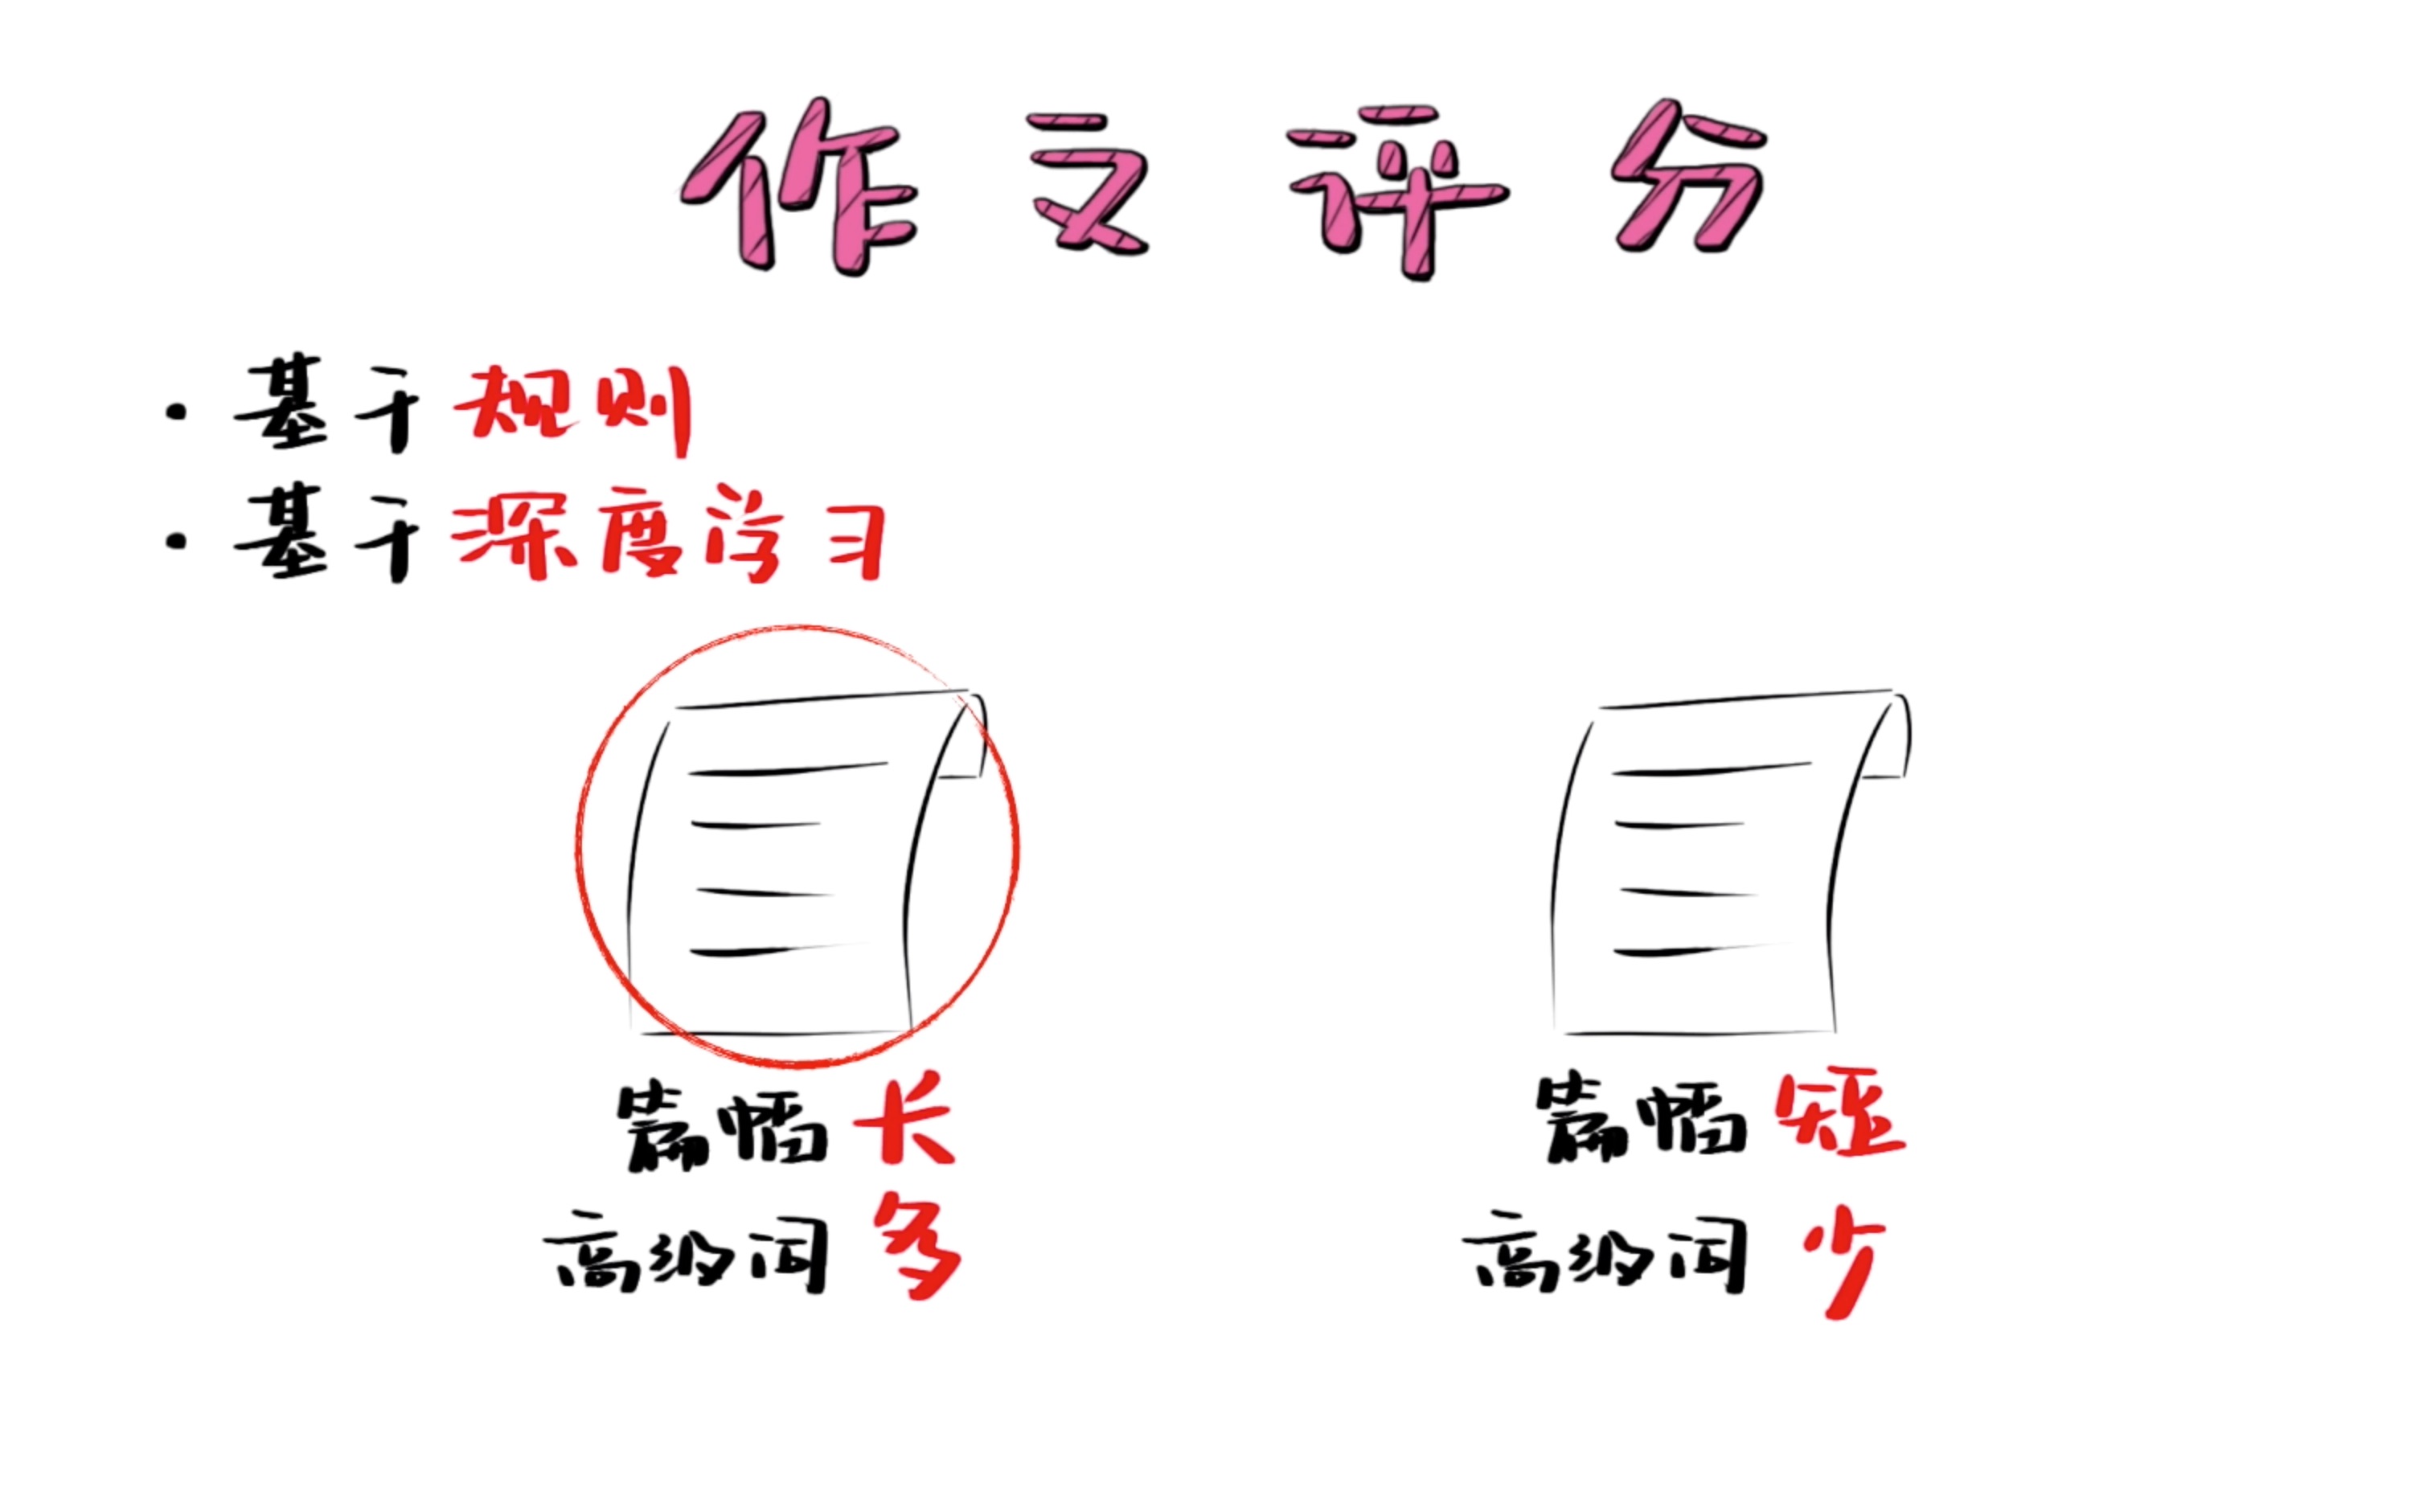 作文评分
·基于规则
·基于深度学习
篇幅长
高级词多
篇幅短
高级词少